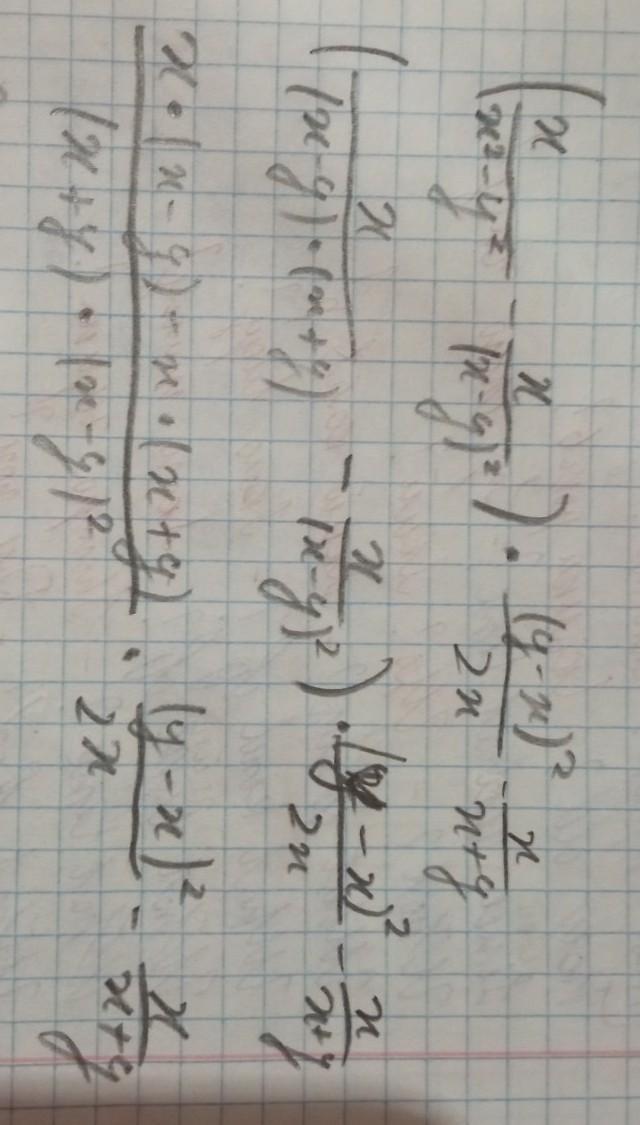 (x/(x²-y²) - x/(x-y)²) · (y-x)²/2x - x/(x+y)
(x/((x-y)·(x+y)) - x/(x-y)²) · (y-x)²/2x - x/(x+y)
(x·(x-y)-x·(x+y))/((x+y)·(x-y)²) · (y-x)²/2x - x/(x+y)